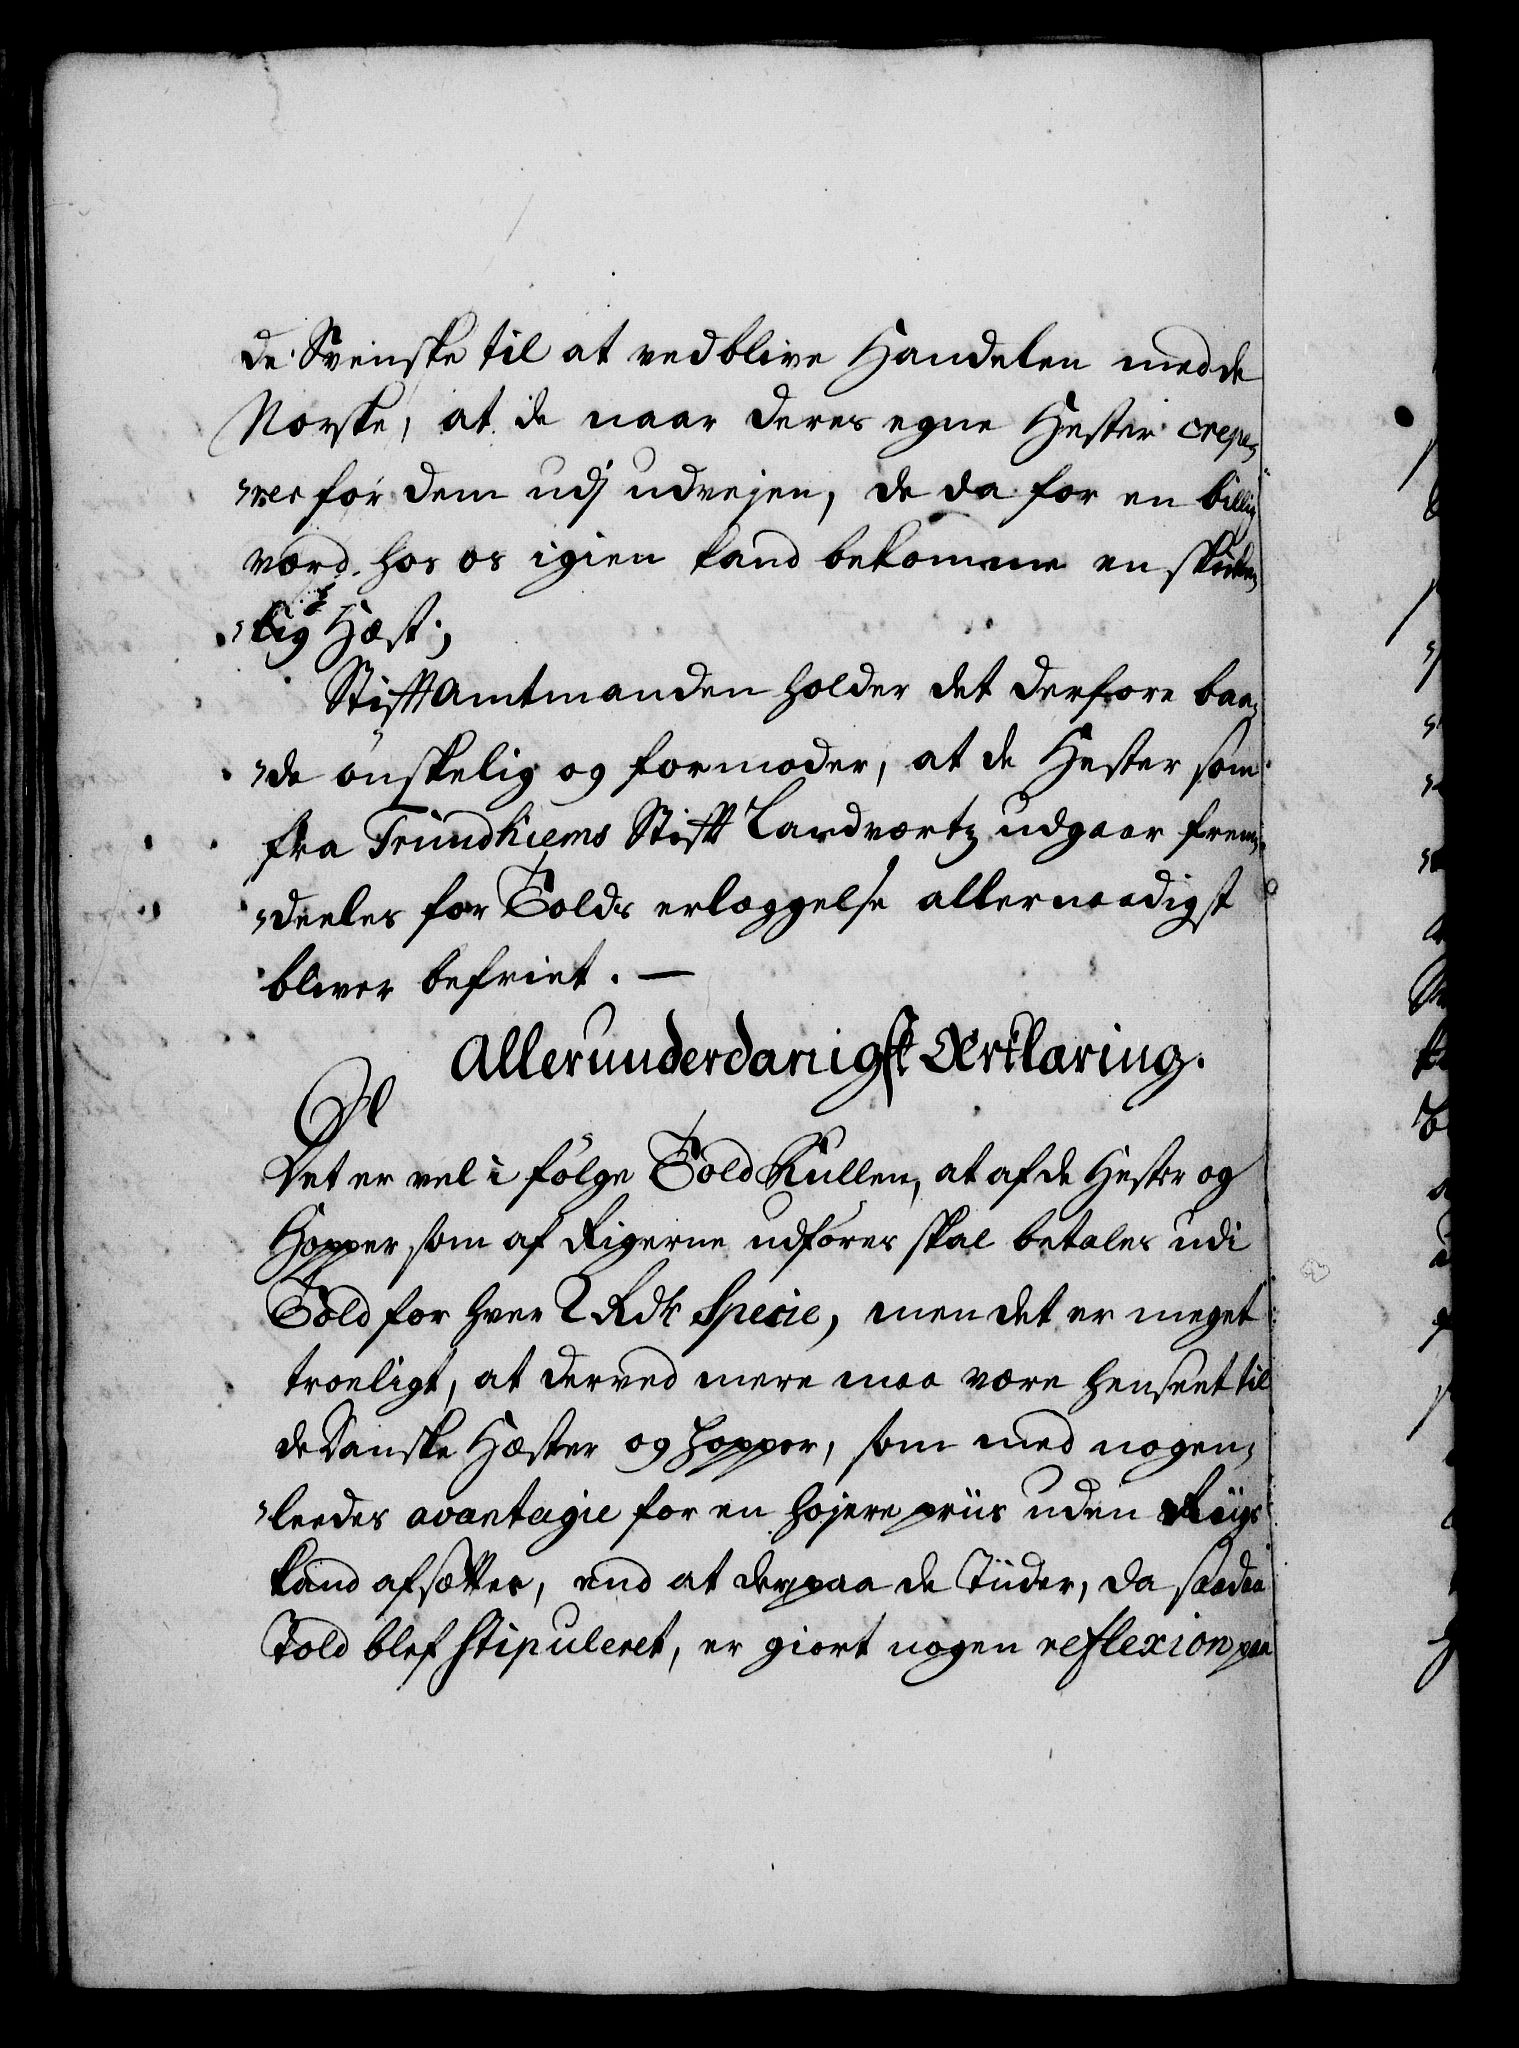 de Svenske til at vedblive Handelen med de
Norske, at de naar deres egne Hester crepe-
-rer for dem udj udvejen, de da for en billig
værd hos os igien kand bekomme en skicke-
-lig Hæst;
StifftAmtmanden holder det derfore baa-
-de önskelig og formoder, at de Hester som
fra Trundhiems Stifft Landværtz udgaar frem-
-deeles for Tolds erlæggelse allernaadigst
bliver befriet. —
Allerunderdanigst Erklæring.
Det er vel i fölge Told Rullen, at af de Hester og
Hopper, som af Rigerne udföres skal betales udi
Told for hver 2 Rdr Specie, men det er meget
troeligt, at derved mere maa være henseet til
de Danske Hæster og Hopper, som med nogen-
-leedes avantagie for en höjere priis uden Riigs
kand afsættes, end at derpaa de Tiider, da saadan
Told blef stipuleret, er giort nogen reflexion paa